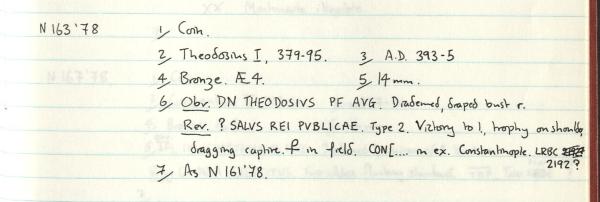 N 163 '78 1/ Coin.
2/ Theodosius I, 379-95. 3/ A.D. 393-5
4/ Bronze. Æ 4. 5/ 14 mm.
6/ Obv. DN THEODOSIVS PF AVG. Diademed, draped bust r.
Rev. ? SALVS REI PVBLICAE. Type 2. Victory to l, trophy on shoulder,
dragging captive. ⳨ in field. CON[.... in ex. Constantinople. LRBC
2192?
7/ As N 161 '78.